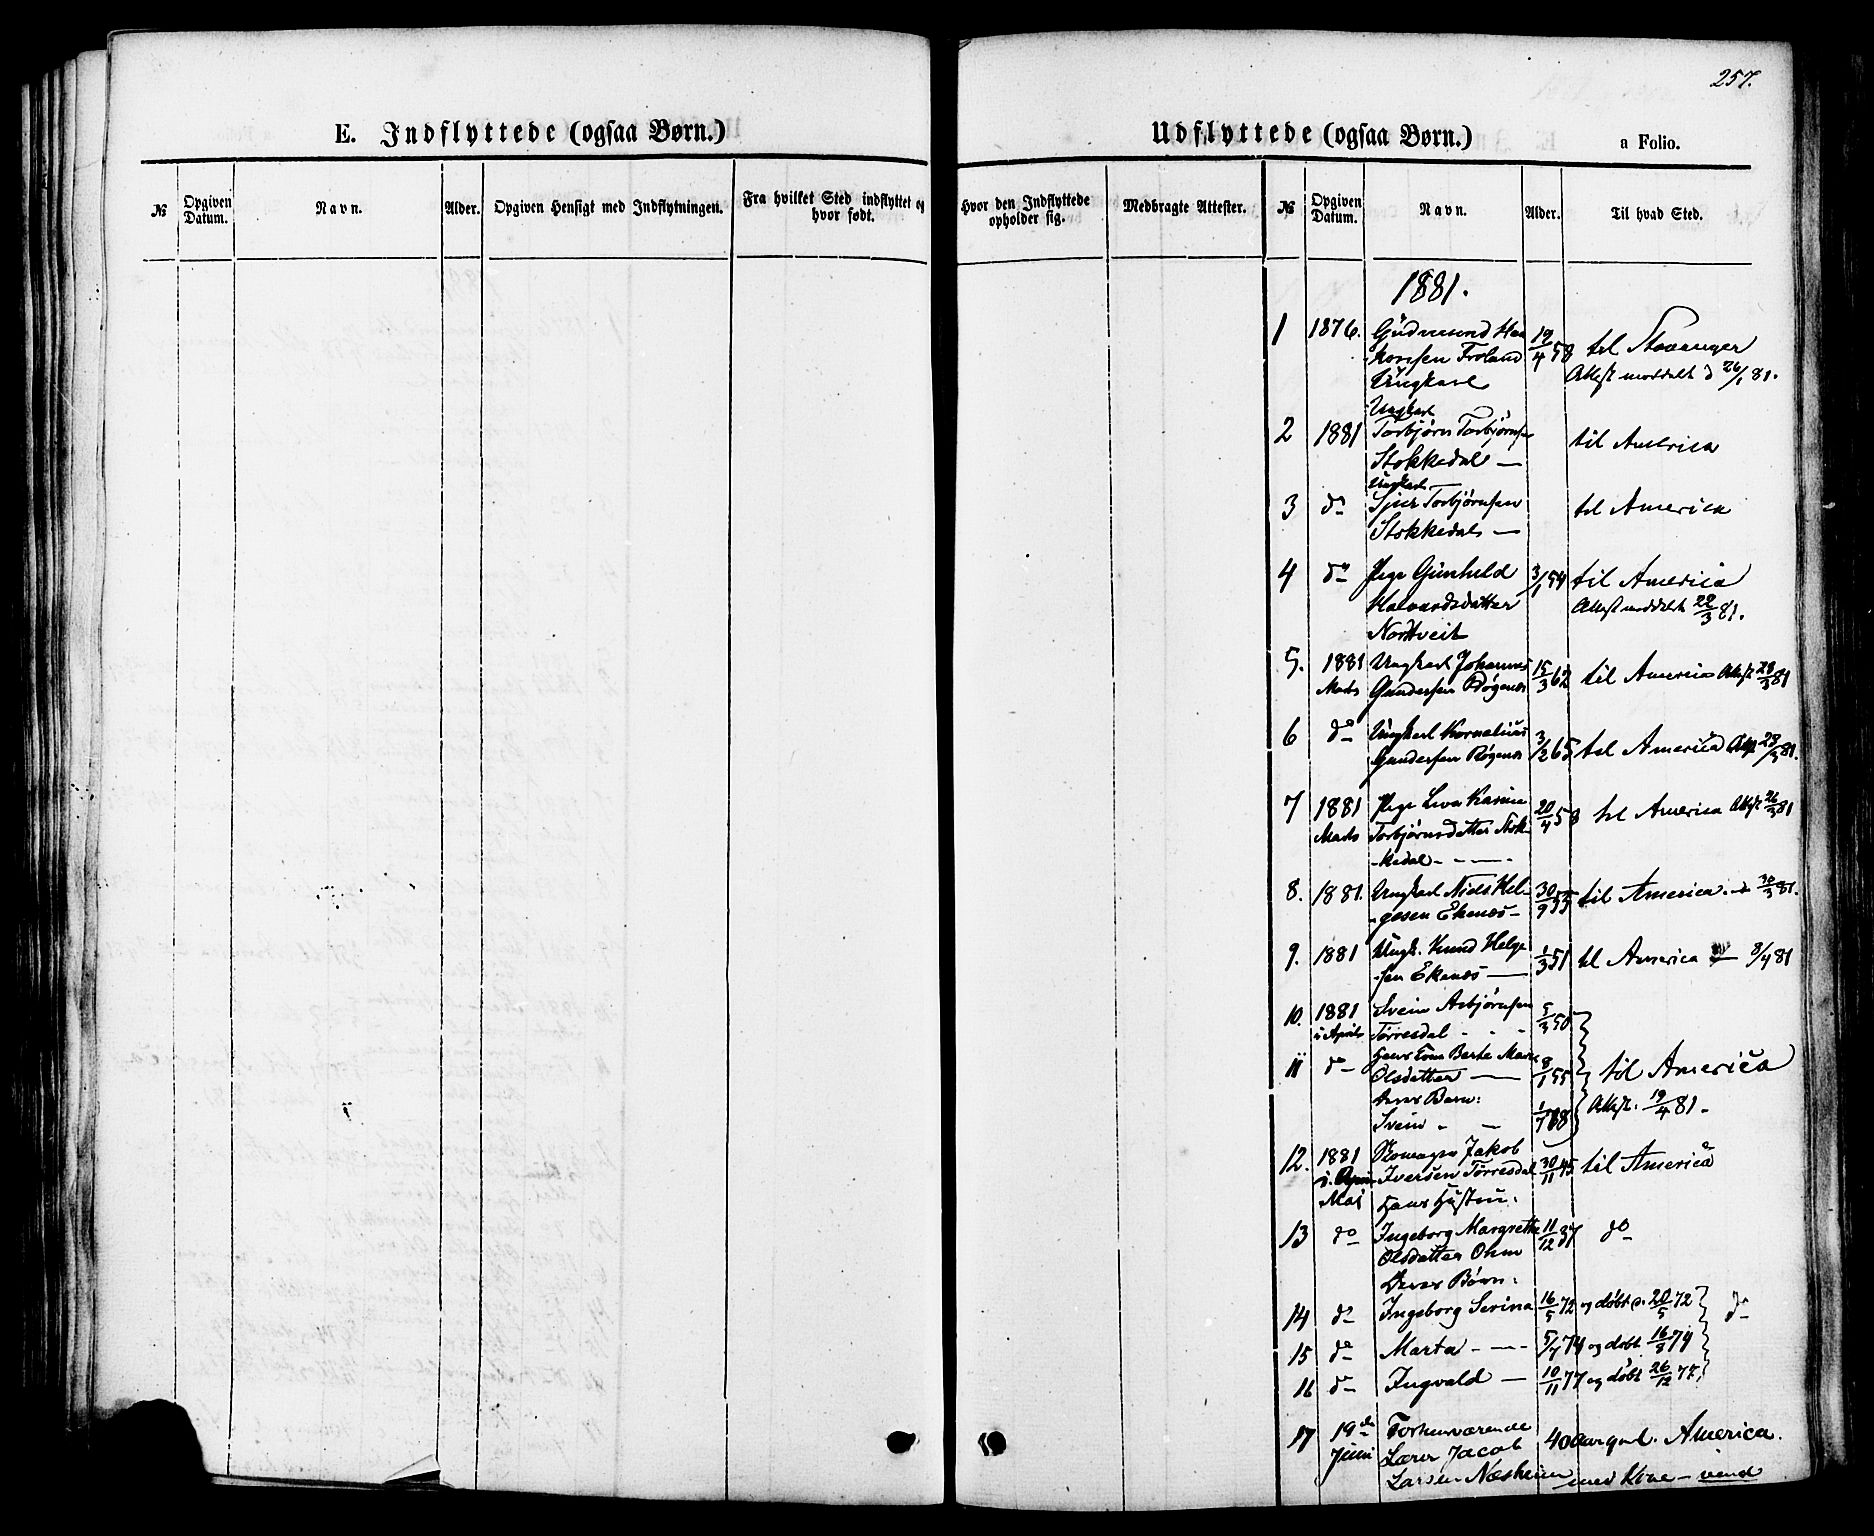 257.
E. Indflyttede (ogsaa Børn.)
Udflyttede (ogsaa Børn.)
a Folio.
№
Opgiven Datum.
Navn.
Alder.
Opgiven Hensigt med Indflytningen.
Fra hvilket Sted indflyttet og hvor født.
Hvor den Indflyttede opholder sig.
Medbragte Attester.
№
Opgiven Datum.
Navn.
Alder.
Til hvad Sted.
1881.
1 1876. Gudmund Haa 19/4 58 til Stavanger
konsen Froland Attest meddelt d 26/1 81.
Ungkarl
Ungkarl
2 1881 Torbjørn Torbjørnsen til America
Stokkedal —
Ungkarl
3 do Sjur Torbjørnsen til America
Stokkedal —
4 do Pige Gunhild 3/1 54 til America
Halvardsdatter Attest meddelt 22/3 81.
Nordtveit
5. 1881 Ungkarl Johannes 15/3 62 til America Attest 28/3 81
Marts Gundersen Røgenes
6 do Ungkarl Kornelius 3/2 65 til America Att 28/3 81.
Gundersen Røgenes
7 1881 Pige Lisa Karine 20/4 58 til America Attest 26/3 81
Marts Torbjørnsdatter Stok-
-kedal - - -
8. 1881. Ungkarl Niels Hel- 30/9 55 til America. — 30/3 81.
-gesen Ekenes -
9. 1881 Ungk. Knud Helge 1/3 51 til America — 8/4 81
-sen Ekenes —
10. 1881 Svein Asbjørnsen 5/3 50
i April Tørresdal - - -
11 do Hans Kone Berte Mar 8/1 55 til America
Olsdatter —
deres Barn: Attest: 19/4 81.
Svein - -
12. 1881 Skomager Jakob 30/11 45 til America
i April Iversen Tørresdal
Mai Hans Hustru:
13 do Ingeborg Margrethe 11/12 37 do
Olsdatter Ohm
Deres Børn:
14 do Ingeborg Serina 16/5 72 og døbt d. 20/5 72 do
15 do Marta - — 5/7 74 og døbt 16/8 74
16 do Ingvald — 10/11 77 og døbt 26/12 77.
17 19de Forhenværende 40 Aar gml. America.
Juni Lærer Jacob
Larsen Næsheim med Kone — vend